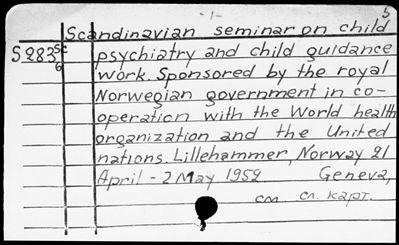 -1- 5
Scandinavian seminar on child
S 283 5c/6 psychiatry and child guidance
work. Sponsored by the royal
Norwegian government in co-
operation with the World health
organization and the United
nations. Lillehammer, Norway 21
April - 2 May 1952 Geneva,
см. сл. карт.